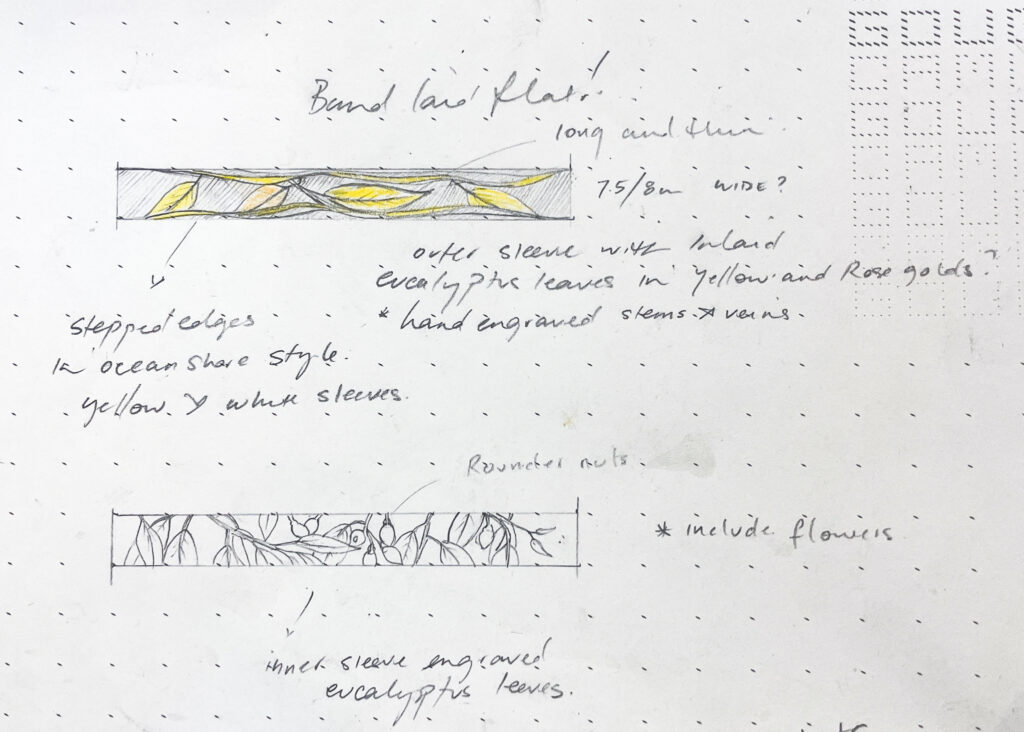 Band laid flat!
long and thin
7.5/8m WIDE?
outer sleeve with Inlaid
eucalyptus leaves in yellow and Rose golds?
* hand engraved stems & veins.
stepped edges
In ocean shore style.
yellow & white sleeves.
Rounder nuts
* include flowers
inner sleeve engraved
eucalyptus leaves.